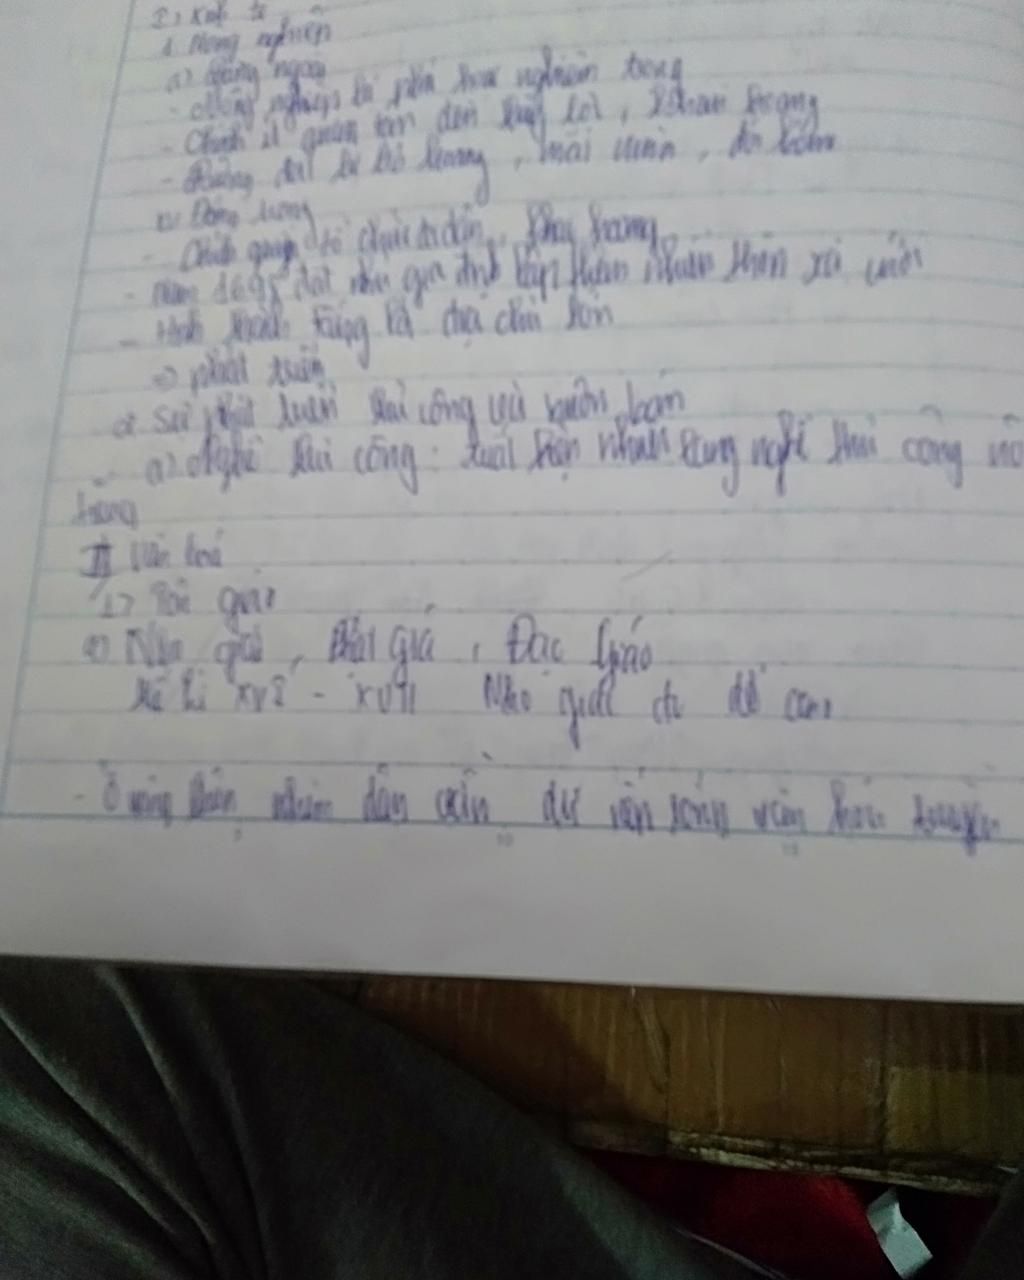 I, Kinh tế
1. Nông nghiệp
a) Đàng ngoài
- Nông nghiệp bị phá hoại nghiêm trọng
- Chính ít quan tâm đến thuỷ lợi, khai hoang
- Ruộng đất bị bỏ hoang, mất mùa, đói kém
b) Đàng trong
- Chính quyền tổ chức di dân, khai hoang
- Năm 1698 đặt phủ gia định lập thêm nhiều thôn xã mới
- Hình thành tầng lớp địa chủ lớn
=> phát triển
2. Sự phát triển thủ công và buôn bán
a) Nghề thủ công: xuất hiện nhiều làng nghề thủ công nổ
tiếng
II Văn hoá
1) Tôn giáo
Nho giáo, Phật giá, Đạo Giáo
Thế kỉ XVI - XVII Nho giáo đề cao
- Ở nông thôn nhân dân vẫn dữ nền sống văn hóa truyền